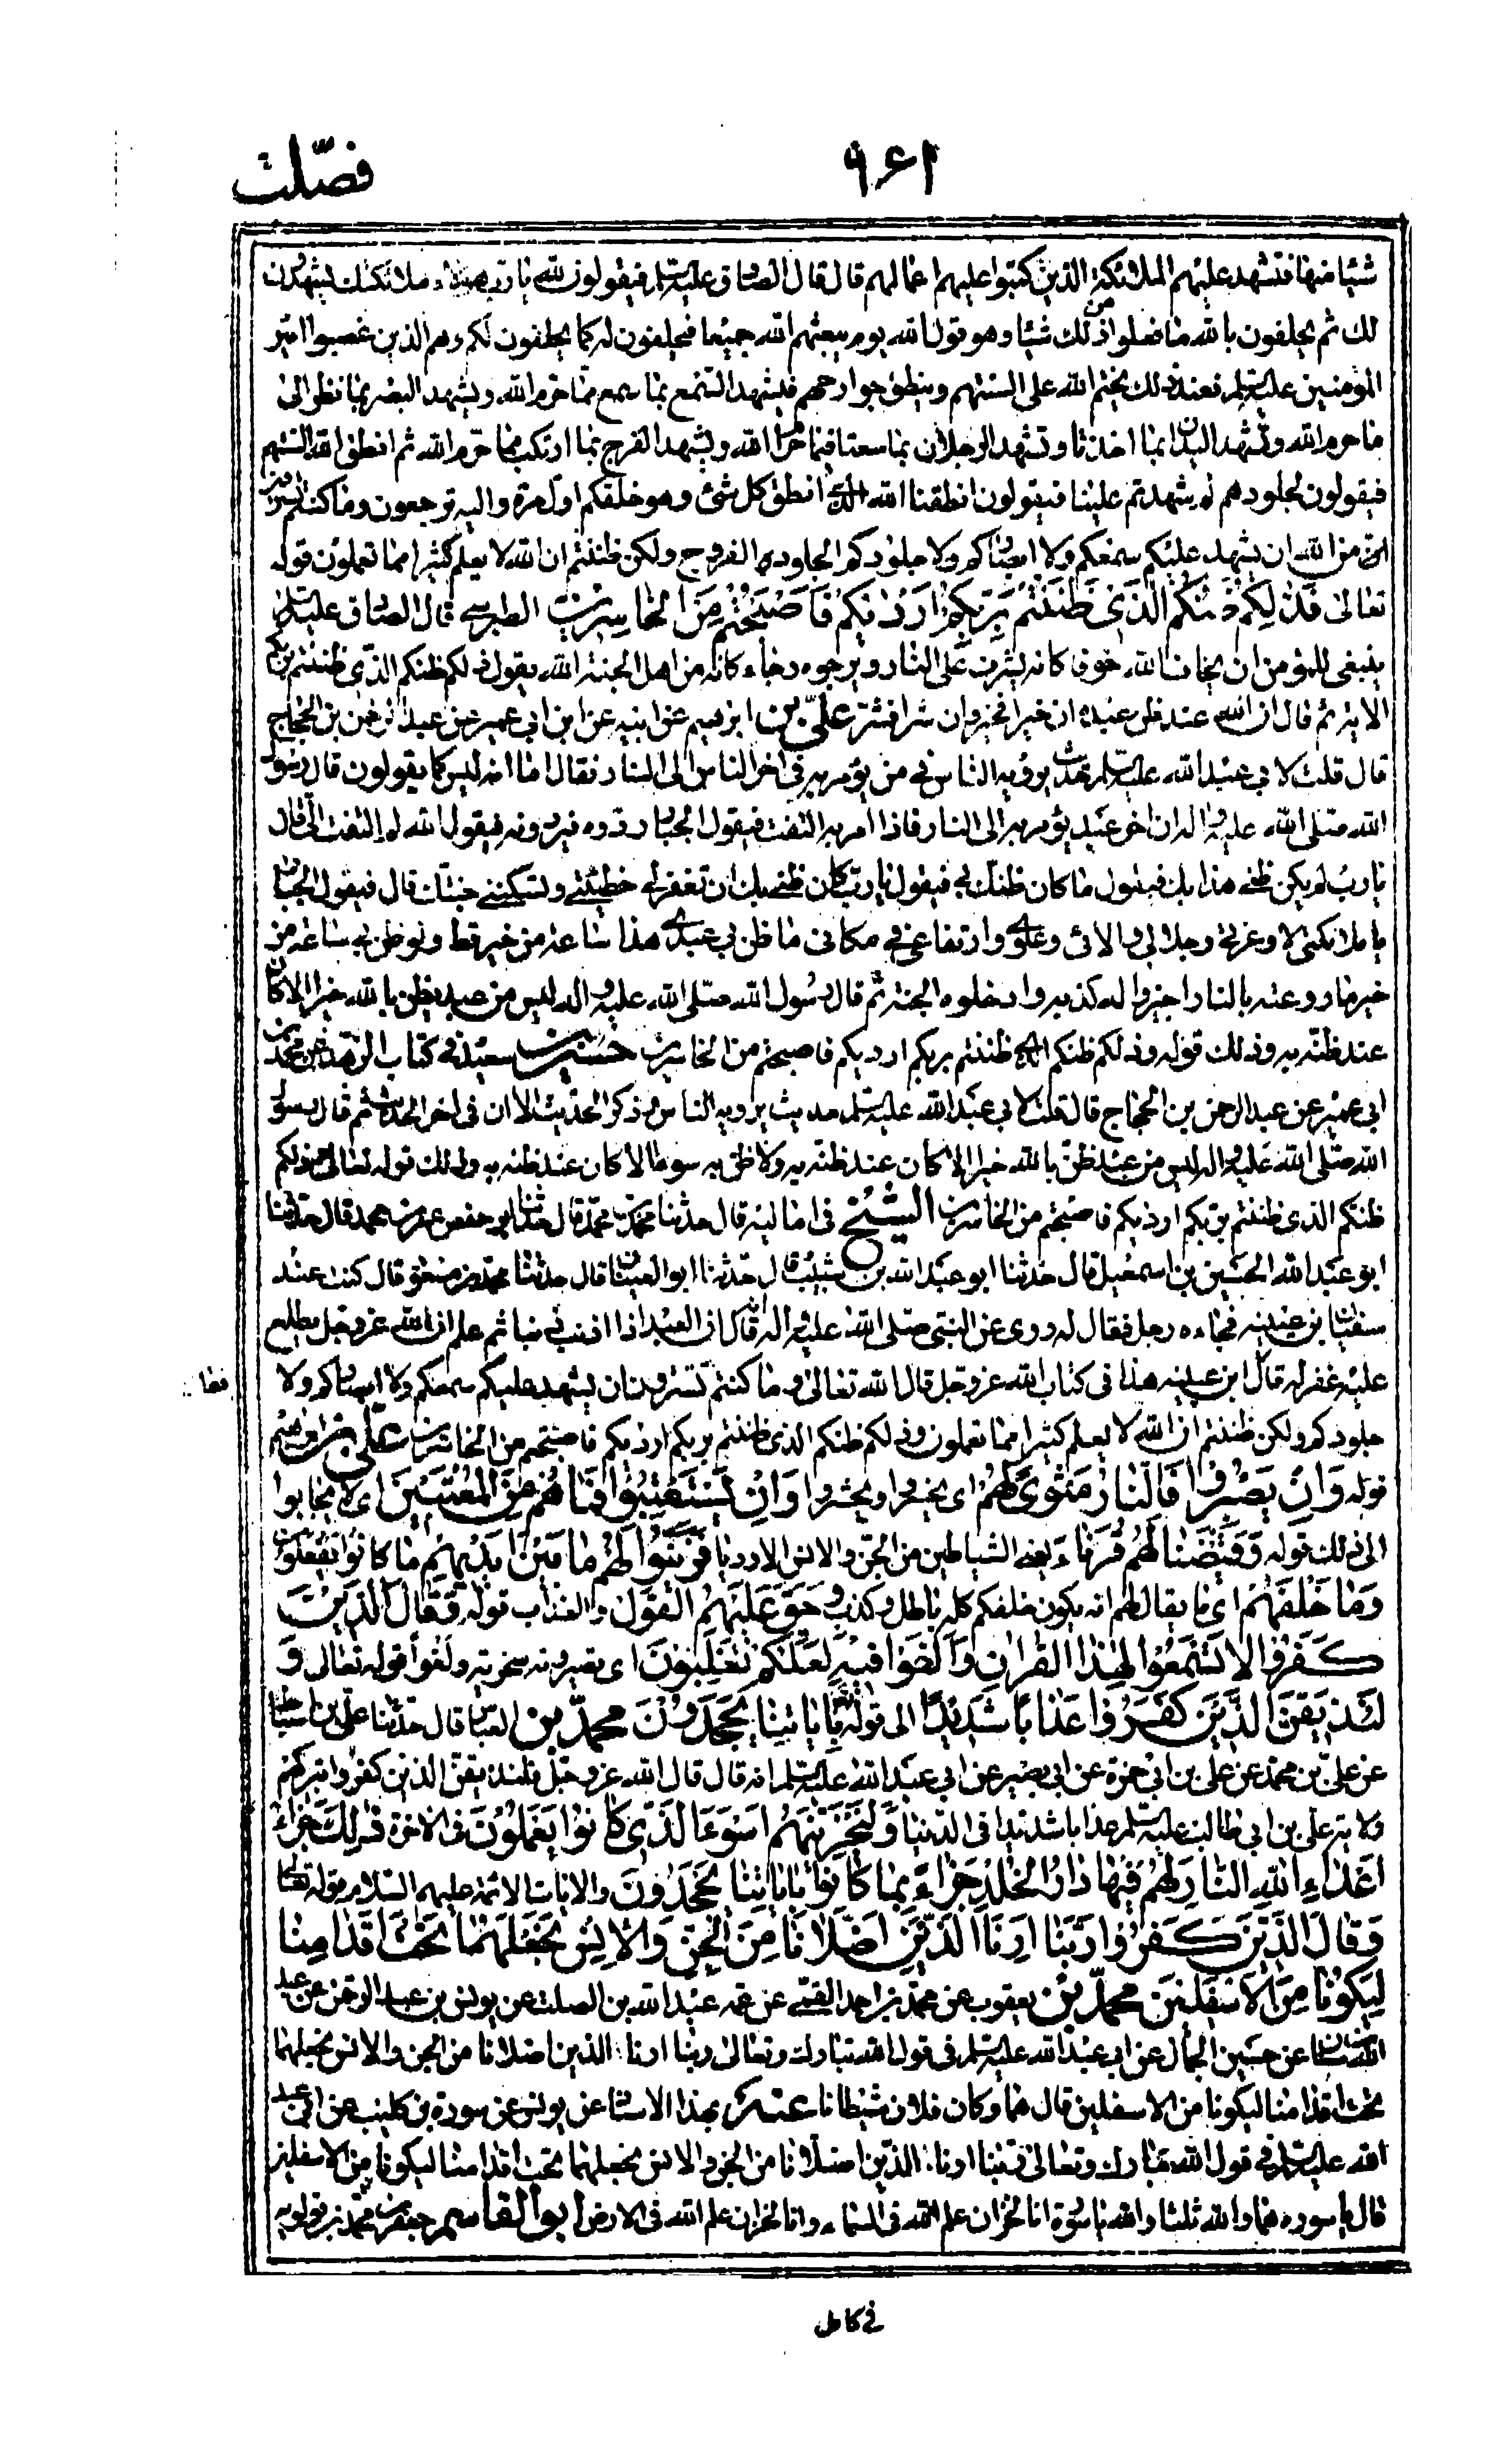 ٩٦٢
فصّلت
شيئا منها فتشهد عليهم الملائكة الذين كتبوا عليهم اعمالهم قال قال الصادق عليه السلم فيقولون لله يا رب هؤلاء ملائكتك يشهدون
لك ثم يحلفون بالله ما فعلوا من ذلك شيئا وهو قول الله يوم يبعثهم الله جميعا فيحلفون له كما يحلفون لكم وهم الذين غصبوا امير
المؤمنين عليه السلم فعند ذلك يختم الله على السنتهم وينطق جوارحهم فيشهد السمع بما سمع مما حرم الله ويشهد البصر بما نظر الى
ما حرم الله وتشهد اليدان بما اخذتا وتشهد الرجلان بما سعتا فيما حرم الله ويشهد الفرج بما ارتكب مما حرم الله ثم انطق الله السنتهم
فيقولون لجلودهم لم شهدتم علينا فيقولون انطقنا الله الذي انطق كل شئ وهو خلقكم اول مرة واليه ترجعون وما كنتم تستترون
اى من الله ان يشهد عليكم سمعكم ولا ابصاركم ولا جلودكم الجلود الفروج ولكن ظننتم ان الله لا يعلم كثيرا مما تعملون قوله
تعالى وَذٰلِكُمْ ظَنُّكُمُ الَّذى ظَنَنْتُمْ بِرَبِّكُمْ اَرْدٰيكُمْ فَاَصْبَحْتُمْ مِنَ الْخاسِرينَ الطبرسي قال الصادق عليه السلم
ينبغى للمؤمن ان يخاف الله خوفا كانه يشرف على النار ويرجوه رجاء كانه من اهل الجنة ان الله يقول ذلكم ظنكم الذى ظننتم بربكم
الاية ثم قال ان الله عند ظن عبده ان خيرا فخير وان شرا فشر علىّ بن ابرهيم عن ابيه عن ابن ابى عمير عن عبد الرحمن بن الحجاج
قال قلت لابى عبد الله عليه السلم حديث يرويه الناس في من يؤمر به في اخر الناس الى النار فقال اما انه ليس كما يقولون قال رسول
الله صلى الله عليه واله ان اخر عبد يؤمر به الى النار فاذا امر به التفت فيقول الجبار ردوه فيردونه فيقول الله لم التفت الىّ قال
يا رب لم يكن ظني هذا بك فيقول ما كان ظنك بي فيقول يا رب كان ظني بك ان تغفر لي خطيئتي وتسكنني جنتك قال فيقول الجبار
يا ملائكتى لا وعزتى وجلالى والائى وعلوى وارتفاعى فى مكانى ما ظن بي عبدي هذا ساعة من خير قط ولو ظن بي ساعة من
خير ما روعته بالنار اجيزوا له كذبه وادخلوه الجنة ثم قال رسول الله صلى الله عليه واله ليس من عبد يظن بالله خيرا الا كان
عند ظنه به وذلك قوله وذلكم ظنكم الذي ظننتم بربكم ارديكم فاصبحتم من الخاسرين حسين بن سعيد في كتاب الزهد عن محمد بن
ابى عمير عن عبد الرحمن بن الحجاج قال قلت لابى عبد الله عليه السلم حديث يرويه الناس وذكر الحديث الا ان فى اخر الحديث ثم قال رسول
الله صلى الله عليه واله ليس من عبد ظن بالله خيرا الا كان عند ظنه به ولا ظن به سوءا الا كان عند ظنه به وذلك قوله تعالى وذلكم
ظنكم الذى ظننتم بربكم ارديكم فاصبحتم من الخاسرين الشيخ فى اماليه قال حدثنا محمد بن محمد قال حدثنا ابو حفص عمر بن محمد قال حدثنا
ابو عبد الله الحسين بن اسمعيل قال حدثنا ابو عبد الله بن شبيب قال حدثنا ابو العيناء قال حدثنا محمد بن مسعر قال كنت عند
سفيان بن عيينة فجاءه رجل فقال له روى عن النبى صلى الله عليه واله انه قال ان العبد اذا اذنب ذنبا ثم علم ان الله عز وجل يطلع
عليه غفر له قال ابن عيينة هذا فى كتاب الله عز وجل قال الله تعالى وما كنتم تستترون ان يشهد عليكم سمعكم ولا ابصاركم ولا
جلودكم ولكن ظننتم ان الله لا يعلم كثيرا مما تعملون وذلكم ظنكم الذى ظننتم بربكم ارديكم فاصبحتم من الخاسرين علىّ بن ابرهيم
قوله وَاِنْ يَصْبِرُوا فَالنّارُ مَثْوىً لَهُمْ اى يخسروا ويخسروا وَاِنْ يَسْتَعْتِبُوا فَما هُمْ مِنَ الْمُعْتَبينَ اى لا يجابوا
الى ذلك قوله وَقَيَّضْنا لَهُمْ قُرَناءَ يعنى الشياطين من الجن والانس الاردياء فَزَيَّنُوا لَهُمْ ما بَيْنَ اَيْديهِمْ ما كانوا يفعلون
وَما خَلْفَهُمْ اى ما يقال لهم انه يكون خلفكم كله باطل وكذب وَحَقَّ عَلَيْهِمُ الْقَوْلُ والعذاب قوله وَقالَ الَّذينَ
كَفَرُوا لا تَسْمَعُوا لِهٰذَا الْقُرْاٰنِ وَالْغَوْا فيهِ لَعَلَّكُمْ تَغْلِبُونَ اى تصيرونه سخرية ولغوا قوله تعالى وَ
لَنُذيقَنَّ الَّذينَ كَفَرُوا عَذابًا شَديدًا الى قوله بِاٰياتِنا يَجْحَدُونَ محمّد بن العباس قال حدثنا على بن اسباط
عن علىّ بن محمد عن على بن ابى حمزة عن ابى بصير عن ابى عبد الله عليه السلم انه قال قال الله عز وجل فلنذيقن الذين كفروا بتركهم
ولاية على بن ابى طالب عليه السلم عذابا شديدا فى الدنيا وَلَنَجْزِيَنَّهُمْ اَسْوَءَ الَّذى كانُوا يَعْمَلُونَ فى الاخرة ذٰلِكَ جَزاءُ
اَعْداءِ اللهِ النّارُ لَهُمْ فيها دارُ الْخُلْدِ جَزاءً بِما كانُوا بِاٰياتِنا يَجْحَدُونَ والايات الائمة عليهم السلام قوله تعالى
وَقالَ الَّذينَ كَفَرُوا رَبَّنا اَرِنَا الَّذَيْنِ اَضَلّانا مِنَ الْجِنِّ وَالْاِنْسِ نَجْعَلْهُما تَحْتَ اَقْدامِنا
لِيَكُونا مِنَ الْاَسْفَلينَ محمّد بن يعقوب عن محمد بن احمد القمي عن عمه عبد الله بن الصلت عن يونس بن عبد الرحمن عن عبد
الله بن سنان عن حسين الجمال عن ابى عبد الله عليه السلم فى قول الله تبارك وتعالى ربنا ارنا الذين اضلانا من الجن والانس نجعلهما
تحت اقدامنا ليكونا من الاسفلين قال هما وكان فلان شيطانا عنه بهذا الاسناد عن يونس عن سورة بن كليب عن ابى عبد
الله عليه السلم فى قول الله تبارك وتعالى ربنا ارنا الذين اضلانا من الجن والانس نجعلهما تحت اقدامنا ليكونا من الاسفلين
قال يا سورة هما والله هما ثلثا والله يا سورة انا لخزان علم الله فى السماء وانا لخزان علم الله فى الارض ابو القاسم جعفر بن محمد بن قولويه
في كامل